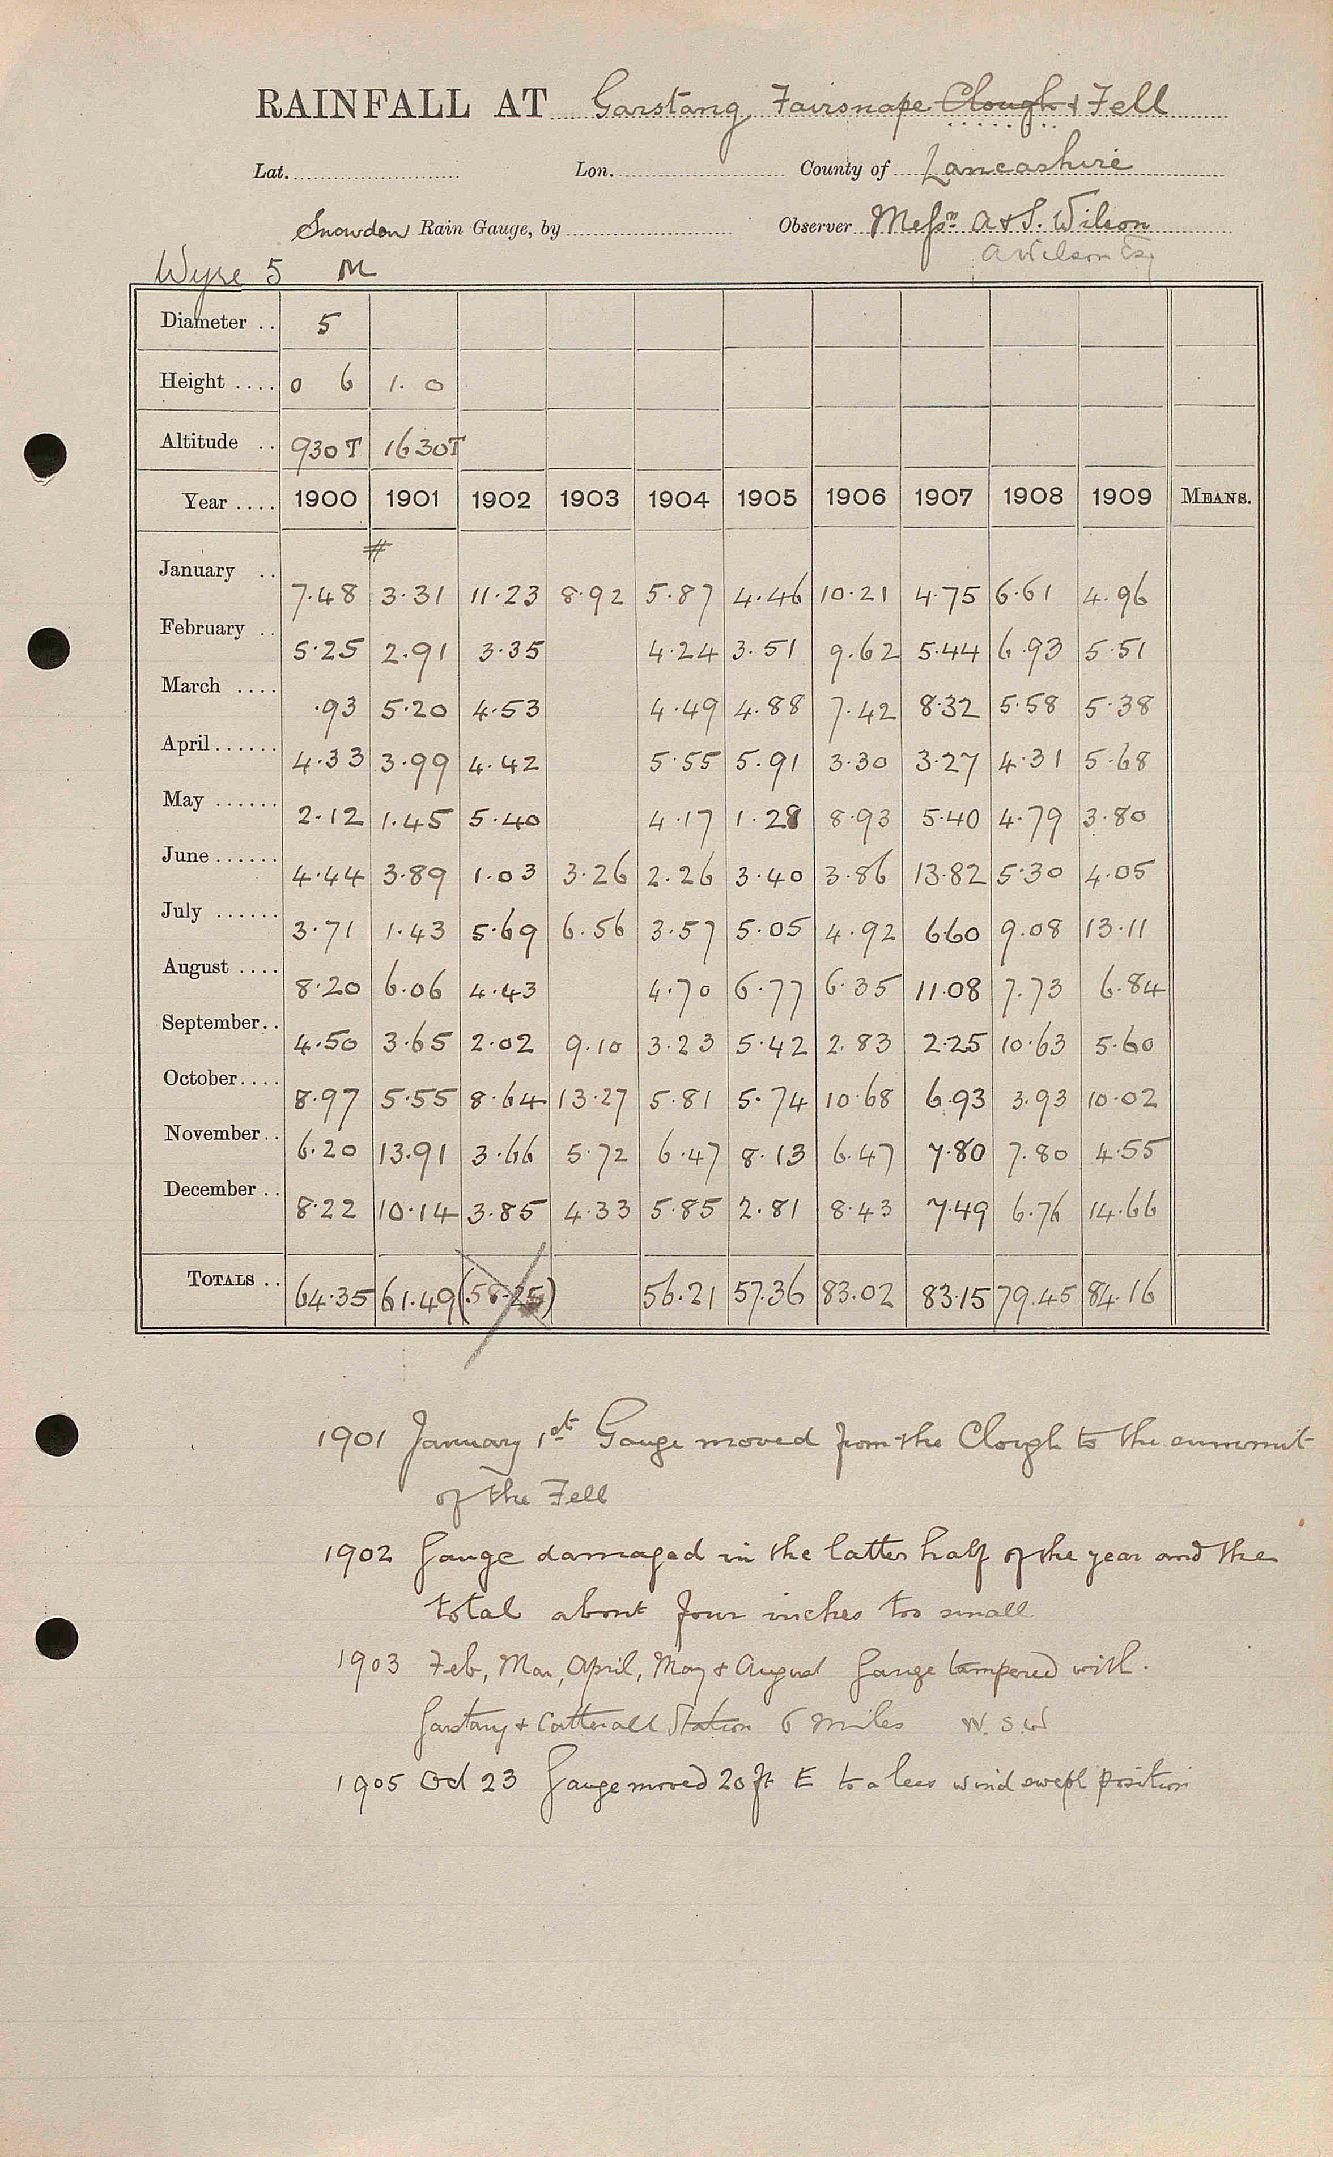 RAINFALL AT Garstang, Fairsnape Clough & Fell
Lat. Lon. County of Lancashire
Snowdon Rain Gauge, by Observer Messrs A & S. Wilson
A Wilson Esq
Wyre 5 M
Diameter .. 5
Height .... 0 6 1. 0
Altitude .. 930T 1630T
Year .... 1900 1901 1902 1903 1904 1905 1906 1907 1908 1909 MEANS.
#
January .. 7.48 3.31 11.23 8.92 5.87 4.46 10.21 4.75 6.61 4.96
February .. 5.25 2.91 3.35 4.24 3.51 9.62 5.44 6.93 5.51
March .... .93 5.20 4.53 4.49 4.88 7.42 8.32 5.58 5.38
April...... 4.33 3.99 4.42 5.55 5.91 3.30 3.27 4.31 5.68
May ...... 2.12 1.45 5.40 4.17 1.28 8.93 5.40 4.79 3.80
June...... 4.44 3.89 1.03 3.26 2.26 3.40 3.86 13.82 5.30 4.05
July ...... 3.71 1.43 5.69 6.56 3.57 5.05 4.92 6.60 9.08 13.11
August .... 8.20 6.06 4.43 4.70 6.77 6.35 11.08 7.73 6.84
September.. 4.50 3.65 2.02 9.10 3.23 5.42 2.83 2.25 10.63 5.60
October.... 8.97 5.55 8.64 13.27 5.81 5.74 10.68 6.93 3.93 10.02
November.. 6.20 13.91 3.66 5.72 6.47 8.13 6.47 7.80 7.80 4.55
December .. 8.22 10.14 3.85 4.33 5.85 2.81 8.43 7.49 6.76 14.66
TOTALS .. 64.35 61.49 (58.25) 56.21 57.36 83.02 83.15 79.45 84.16
1901 January 1st Gauge moved from the Clough to the summit
of the Fell
1902 Gauge damaged in the latter half of the year and the
total about four inches too small
1903 Feb, Mar, April, May & August Gauge tampered with.
Garstang & Catterall Station 6 miles W.S.W
1905 Oct 23 Gauge moved 20 ft E to a less wind swept position